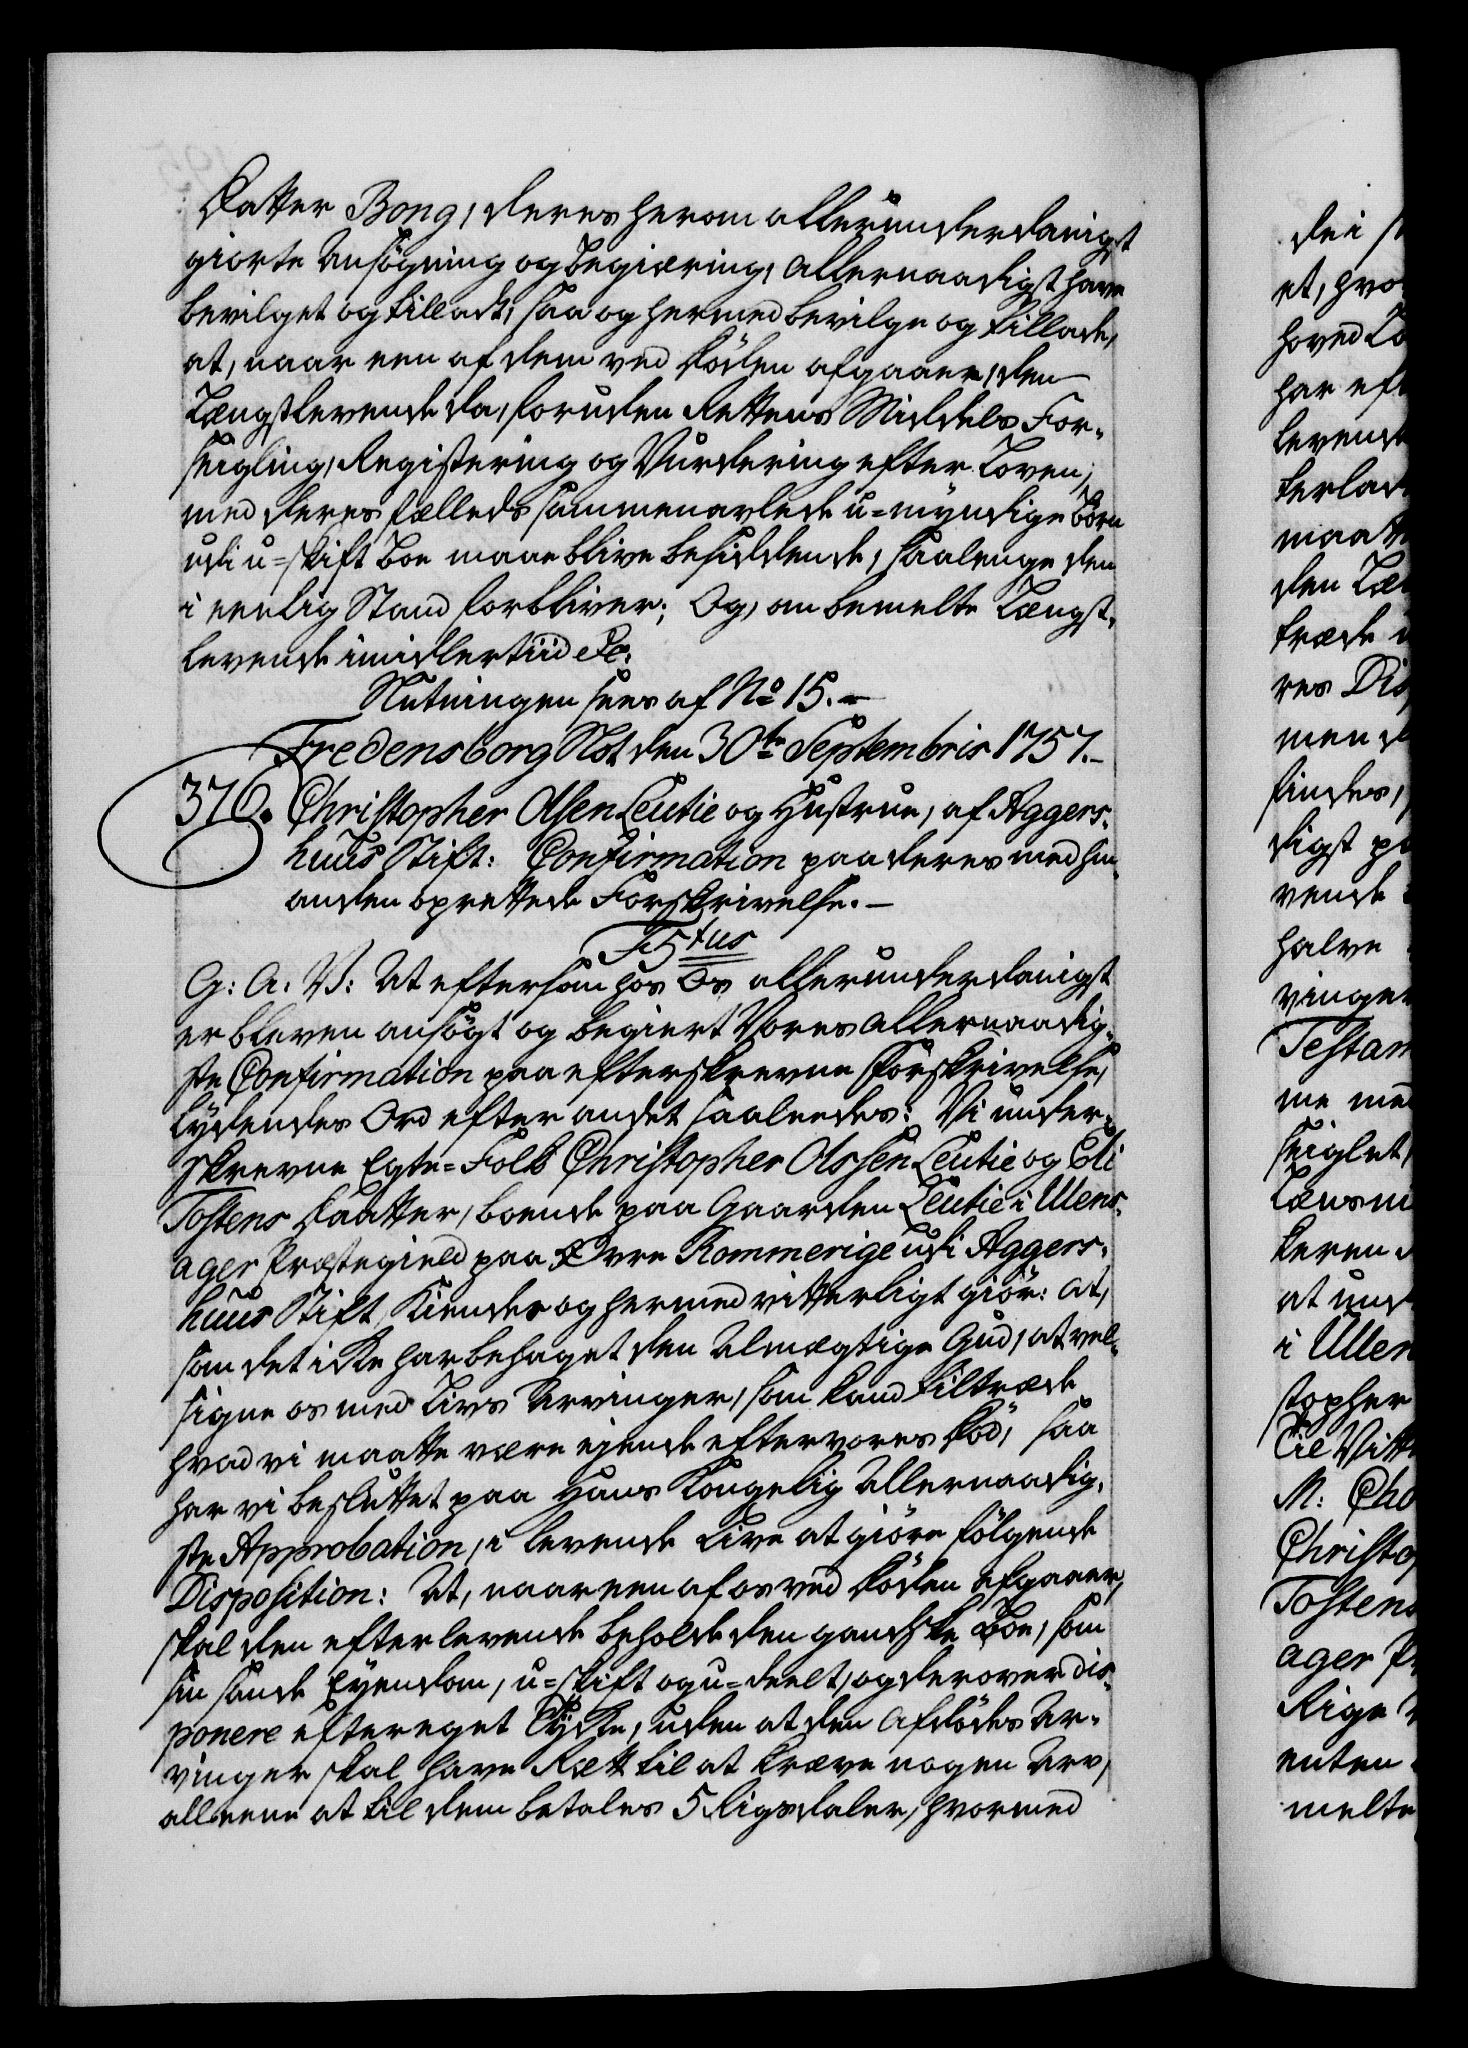 Datter Bong, deres herom allerunderdanigst
giorte Ansøgning og Begiæring, allernaadigst have
bevilget og tilladt, saa og hermed bevilge og tillade,
at, naar een af dem ved Døden afgaaer, den
Længstlevende da, foruden Rettens Middels For-
seigling, Registering og Vurdering efter Loven,
med deres fælleds sammenavlede u-myndige Børn
udi u-skift Boe maae blive besiddende, saalenge den
i eenlig Stand forbliver; Og, om bemelte Længst-
levende imidlertiid &c:
Slutningen sees af No 15.
Fredensborg Slot den 30te Septembris 1757.
376. Christopher Olsen Leutie og Hustrue, af Aggers-
huus Stift: Confirmation paa deres med hin-
anden oprettede Forskrivelse.
F5tus
G: A. V: At eftersom hos Os allerunderdanigst
er bleven ansøgt og begiert Vores allernaadig-
ste Confirmation paa efterskrevne Forskrivelse,
lydendes Ord efter andet saaledes: Vi under-
skrevne Egte-Folk Christopher Olssen Leutie og Eli
Tostens Daatter, boende paa Gaarden Leutie i Ulens-
ager Præstegield paa Øvre Rommerige udi Aggers-
huus Stift, Kiender og hermed vitterligt giør: at,
som det icke har behaget den Almægtige Gud, at vel-
signe os med Livs Arvinger, som kand tiltræde
hvad vi maatte være ejende efter vores Død, saa
har vi besluttet paa Hans Kongelig Allernaadig-
ste Approbation, i levende Live at giøre følgende
Disposition: At, naar een af os ved Døden afgaaer,
skal den efterlevende beholde den gandske Boe, som
sin sande Eyendom, u-skift og u-deelt, og derover dis-
ponere efter eget Tycke, uden at den Afdødes Ar-
vinger skal have Ræt til at kræve nogen Arv,
alleene at til dem betales 5 Rigsdaler, hvormed